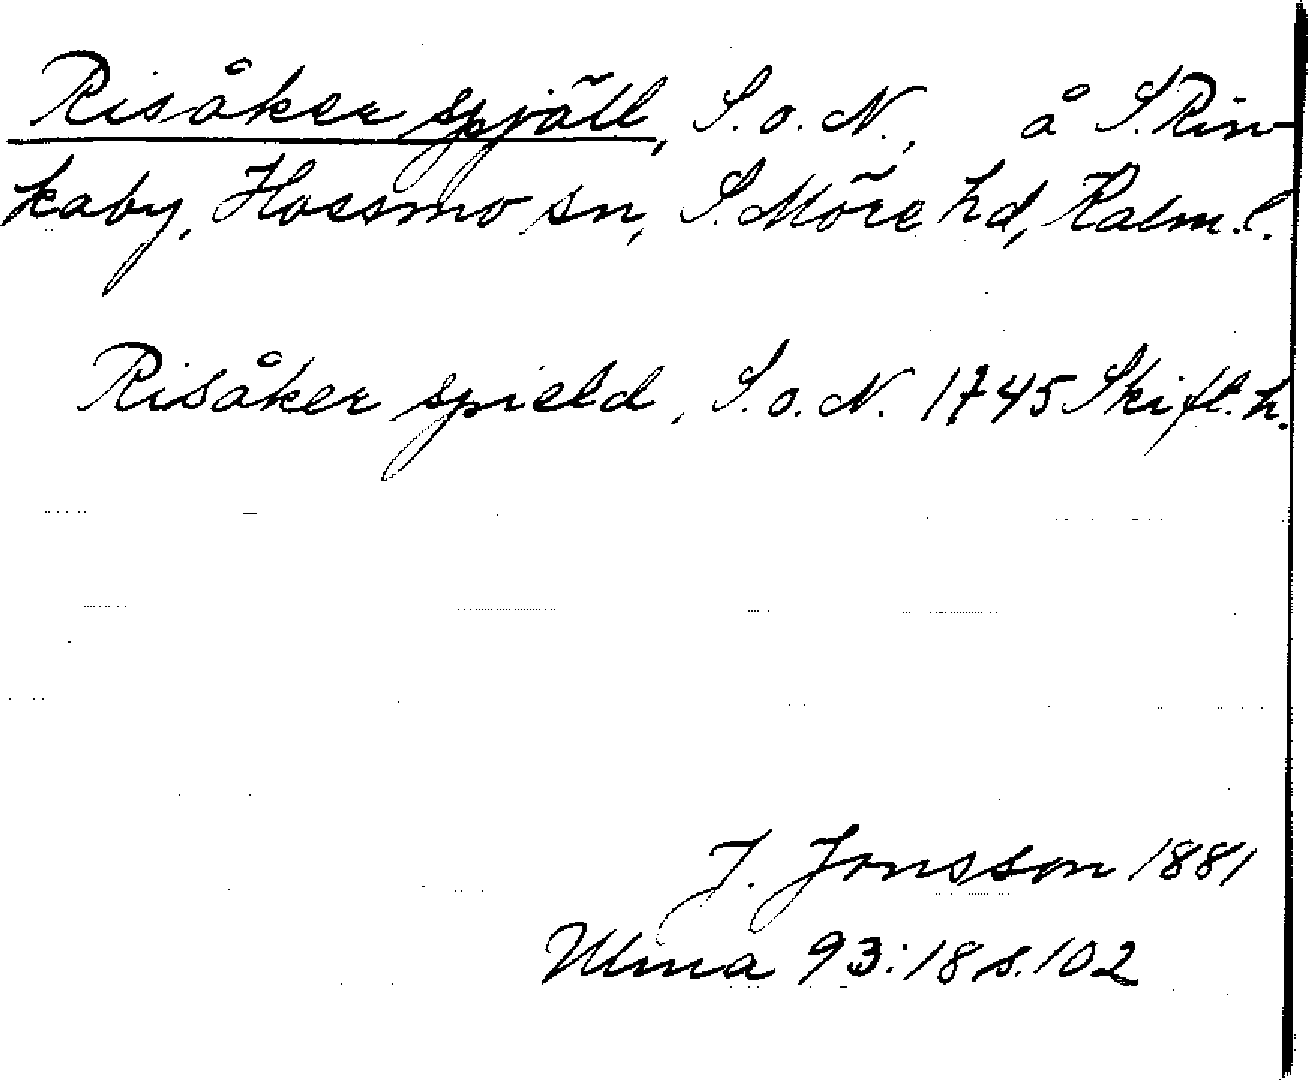 Risåker spjäll, S. o. N., å S. Rin-
kaby, Hossmo sn, S. Möre hd, Kalm. l.
Risåker spield, S. o. N. 1745 Skift. h.
J. Jonsson 1881
Ulma 93:18 s. 102